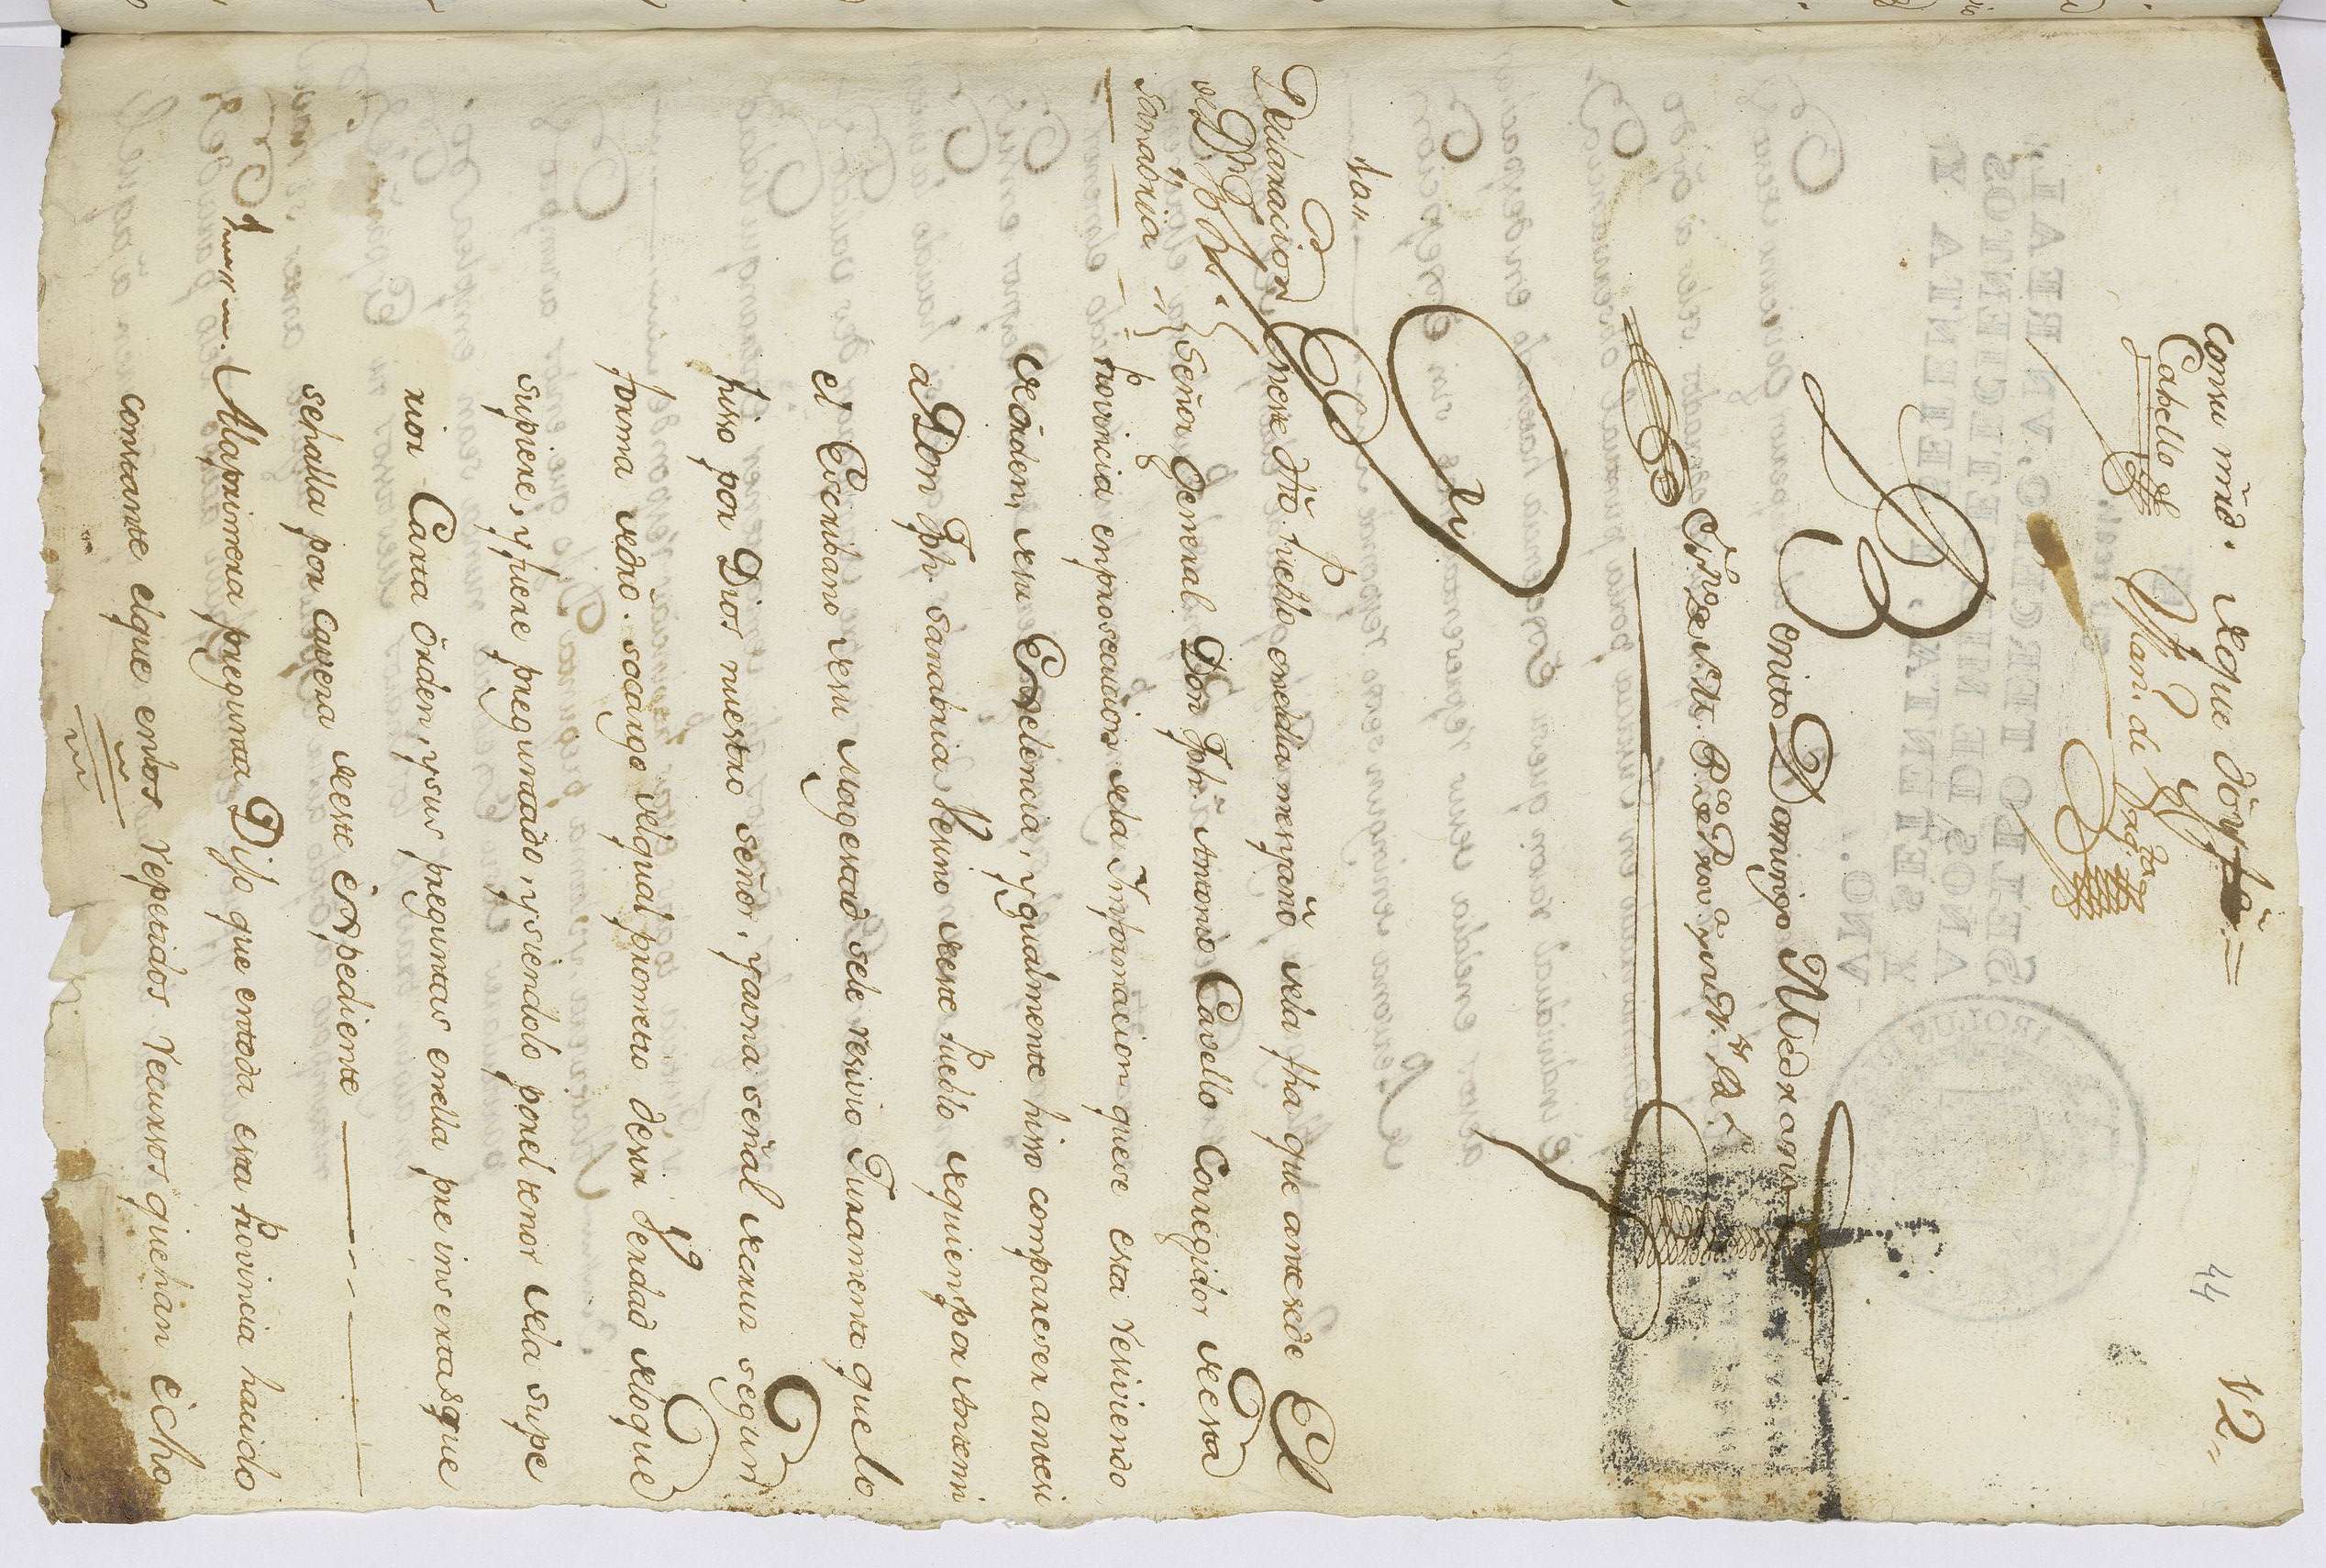 44
12
con su md. de que doy fé =
Cabello Man. de
Benito Domingo Medrano
Essno de S.M. Pco de Prov.a y
Declaracion
de Dn Jph.
Sanabria
En este dho. Pueblo en el dia mes y año de la fha que antesede El
Señor General Don Jph. Antonio Cavello Corregidor de esta
Provincia en prosecucion de la Informacion que se esta resiviendo
de orden, de su Excelencia, y gualmente hiso compareser antesi
a Don Jph. Sanabria Vesino de este Pueblo de quien por Antemi
el Escribano de su Magestad sele resivio Juramento que lo
hiso por Dios nuestro señor, y a una señal de cruz segun
forma de dro. so cargo del qual prometio desir Verdad de lo que
supiere, y fuere preguntado, y siendolo por el tenor de la supe
rior Carta orden, y sus preguntas en ella pre insertas que
se halla por cavesa de este Expediente
A la primera pregunta Dijo que en toda esta Provincia ha sido
constante el que en los repetidos recursos que han echo